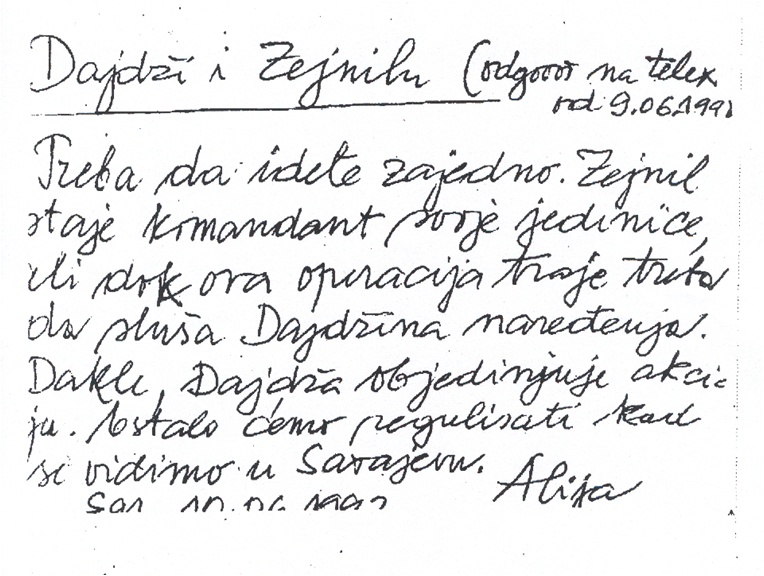 Dajdži i Zejnilu (odgovor na telex
od 9.06.1992
Treba da idete zajedno. Zejnil
staje komandant svoje jedinice,
ali dok ova operacija traje treba
da sluša Dajdžina naređenja.
Dakle, Dajdža objedinjuje akci-
ju. Ostalo ćemo regulisati kad
se vidimo u Sarajevu.
Sar. 10.06.1992 Alija